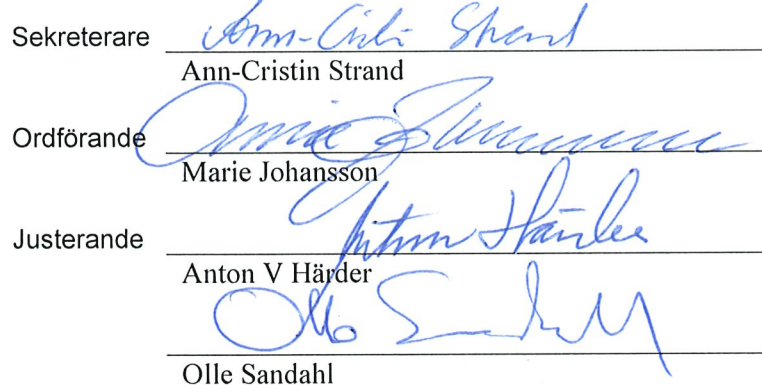 Sekreterare Ann-Cristin Strand
Ann-Cristin Strand
Ordförande
Marie Johansson
Justerande Anton Härder
Anton V Härder
Olle Sandahl
Olle Sandahl